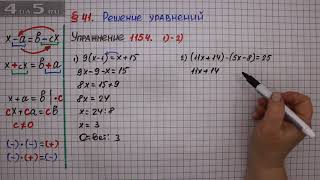 4 на 5.ru
§ 41. Решение уравнений
Упражнение 1154. 1)-2)
x-a=b-cx
x+cx=b+a
x+a=b |·c
cx+ca=cb
c≠0
(-)·(-)=(+)
(-)·(+)=(-)
1) 9(x-1)=x+15
9x-9-x=15
8x=15+9
8x=24
x=24:8
x=3
Ответ: 3
2) (11x+14)-(5x-8)=25
11x+14